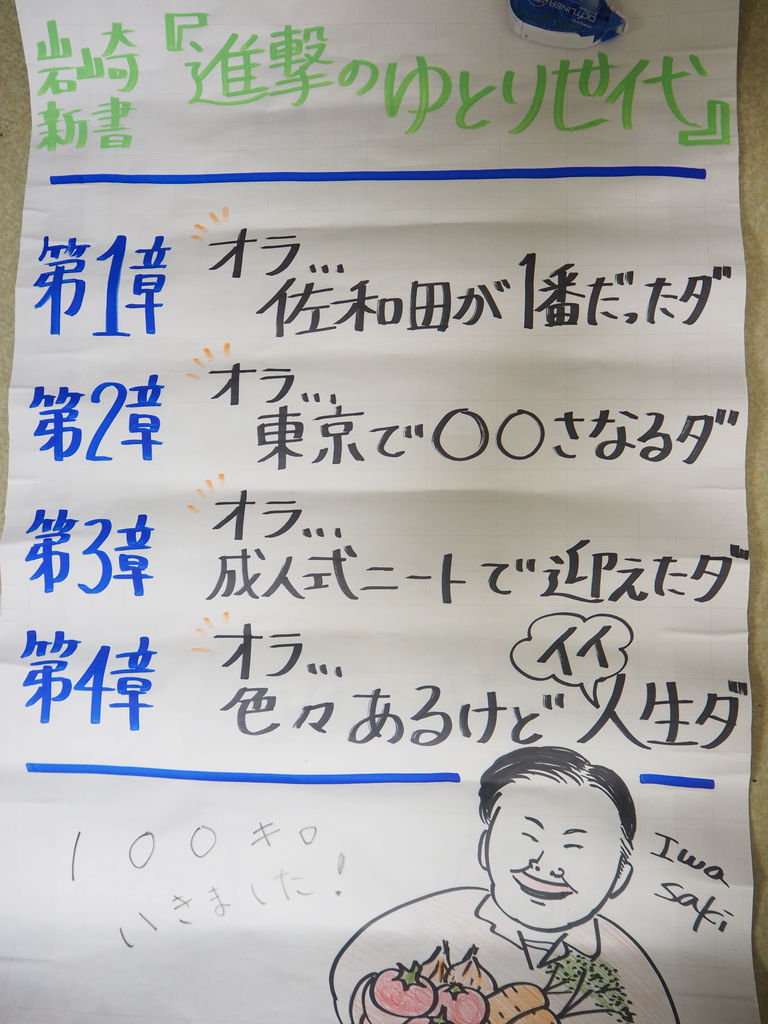 岩崎新書
『進撃のゆとり世代』
第1章
オラ...
佐和田が1番だったダ
第2章
オラ...
東京で〇〇さなるダ
第3章
オラ...
成人式ニートで迎えたダ
第4章
オラ...
イイ
色々あるけど人生ダ
100キロ
いきました!
Iwa
saki